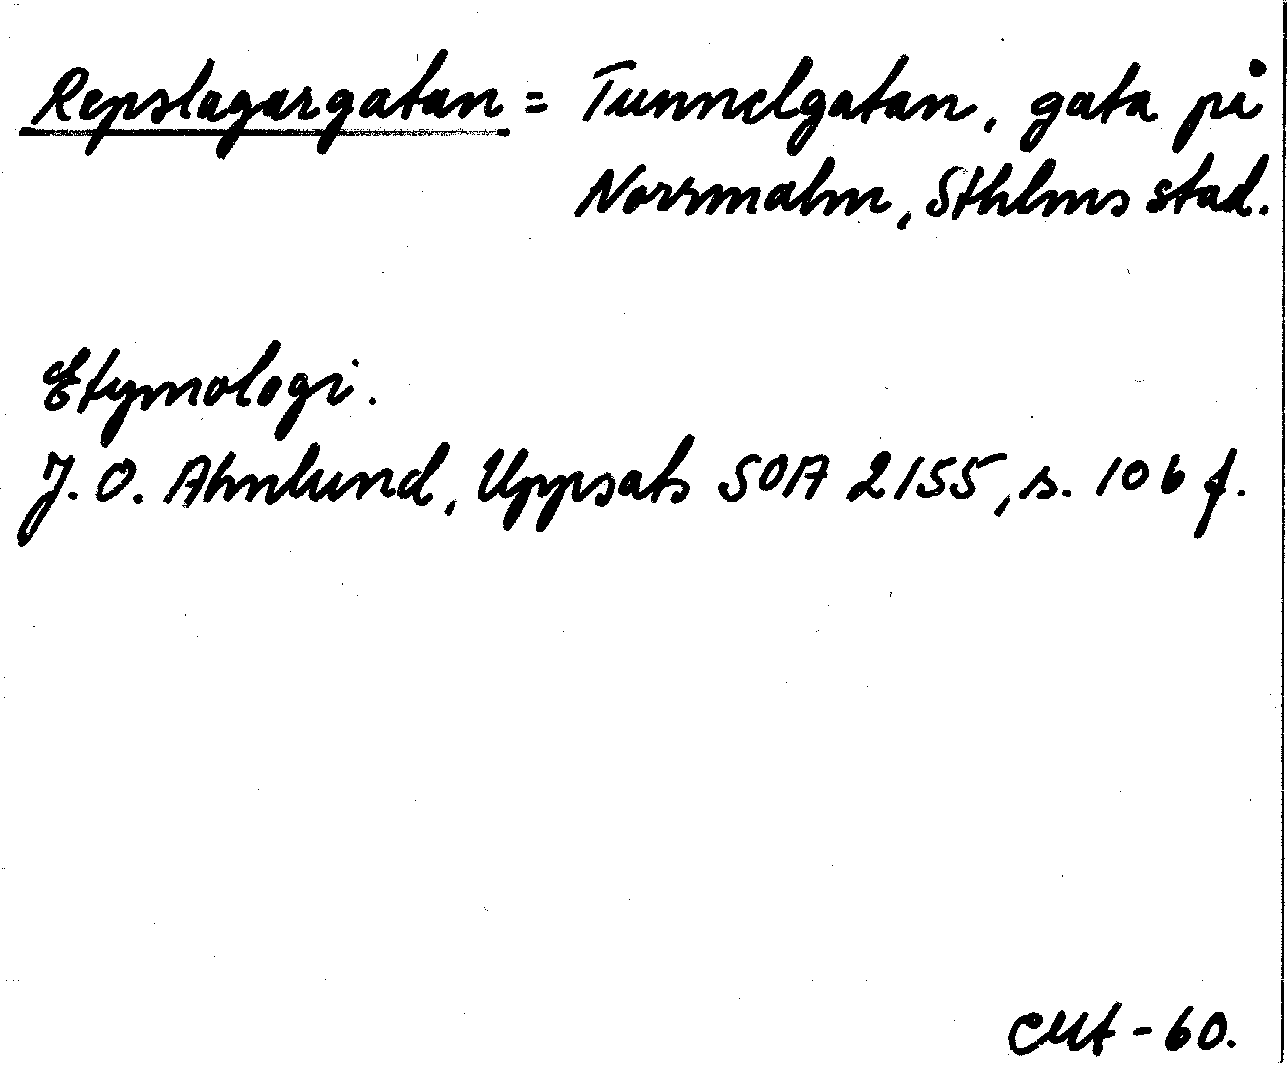 Repslagargatan = Tunnelgatan, gata på
Norrmalm, Sthlms stad.
Etymologi.
J. O. Ahnlund, Uppsats SOA 2155, s. 106 f.
- 60.